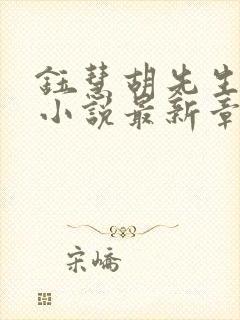 鈺慧胡先生
小说最新章
宋峤